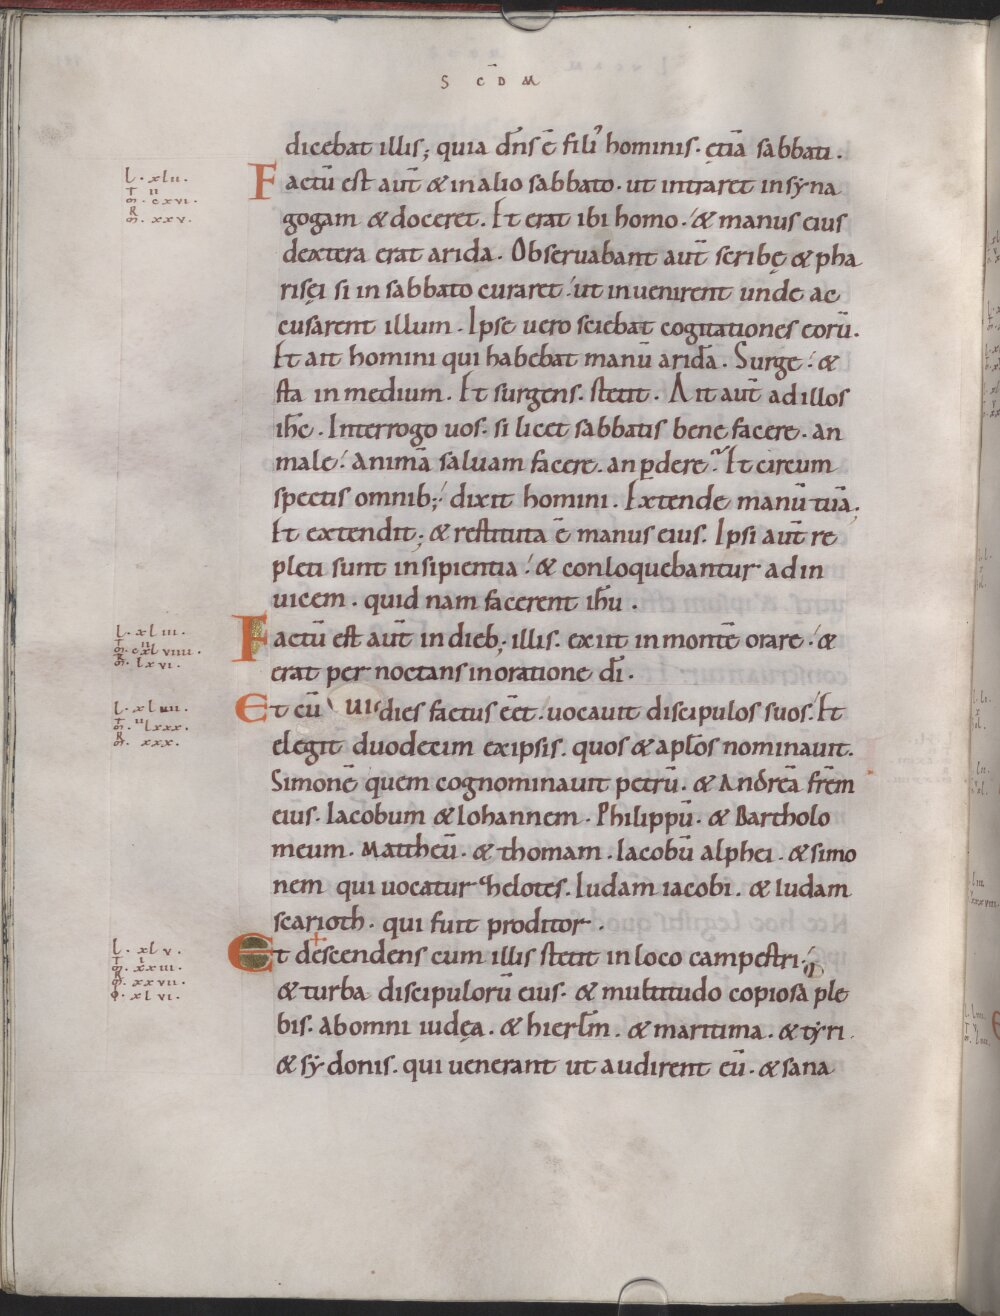 S C̄D M
dicebat illis; quia dn̄s ē filiˀ hominis · etiā sabbati ·
L · xlii ·
T ii
m̄ · cxvi ·
R
m̄ · xxv ·
Factū est aut̄ & in alio sabbato · ut intraret in syna
gogam & doceret · Et erat ibi homo · & manus eius
dextera erat arida · Observabant aut̄ scribę & pha
risęi si in sabbato curaret · ut invenirent unde ac
cusarent illum · Ipse uero sciebat cogitationes eorū ·
Et ait homini qui habebat manū aridā · Surge · &
sta in medium · Et surgens · stetit · Ait aut̄ ad illos
ih̄c · Interrogo uos · si licet sabbatis bene facere · an
male · animā saluam facere · an ꝑdere · Et circum
spectis omnib; dixit homini · Extende manū tuā;
Et extendit; & restituta ē manus eius · Ipsi aut̄ re
pleti sunt insipientia · & conloquebantur ad in
uicem · quid nam facerent ih̄u ·
L · xliii ·
T ii
m̄ · cxlviiii ·
R
m̄ · lxvi ·
Factū est aut̄ in dieb; illis · exiit in montē orare · &
erat per noctans in oratione dī ·
L · xliiii ·
T ii
m̄ · lxxx ·
R
m̄ · xxx ·
Et cū dies factus eēt · uocauit discipulos suos · Et
elegit duodecim ex ipsis · quos & apl̄os nominauit ·
Simonē quem cognominauit petrū · & Andreā fr̄em
eius · Iacobum & Iohannem · Philippū · & Bartholo
meum · Mattheū · & thomam · Iacobū alphei · & simo
nem qui uocatur zhelotes · Iudam iacobi · & Iudam
scarioth · qui fuit proditor ·
L · xlv ·
T i
m̄ · xxiii ·
R
m̄ · xxvii ·
xlvi ·
Et descendens cum illis stetit in loco campestri ·
& turba discipulorū eius · & multitudo copiosa ple
bis · ab omni iudęa · & hierl̄m · & maritima · & tyri ·
& sydonis · qui uenerant ut audirent eū · & sana